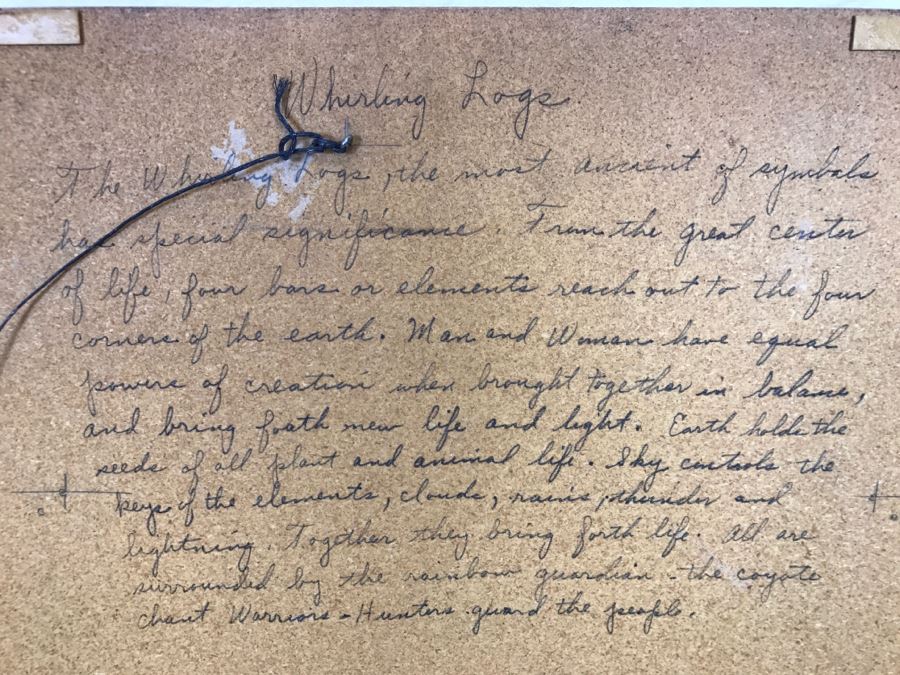 Whirling Logs
The Whirling Logs, the most ancient of symbols
has special significance. From the great center
of life, four bars or elements reach out to the four
corners of the earth. Man and Woman have equal
powers of creation when brought together in balance,
and bring forth new life and light. Earth holds the
seeds of all plant and animal life. Sky controls the
keys of the elements, clouds, rains, thunder and
lightning. Together they bring forth life. All are
surrounded by the rainbow guardian - the coyote
chant Warriors - Hunters guard the people.